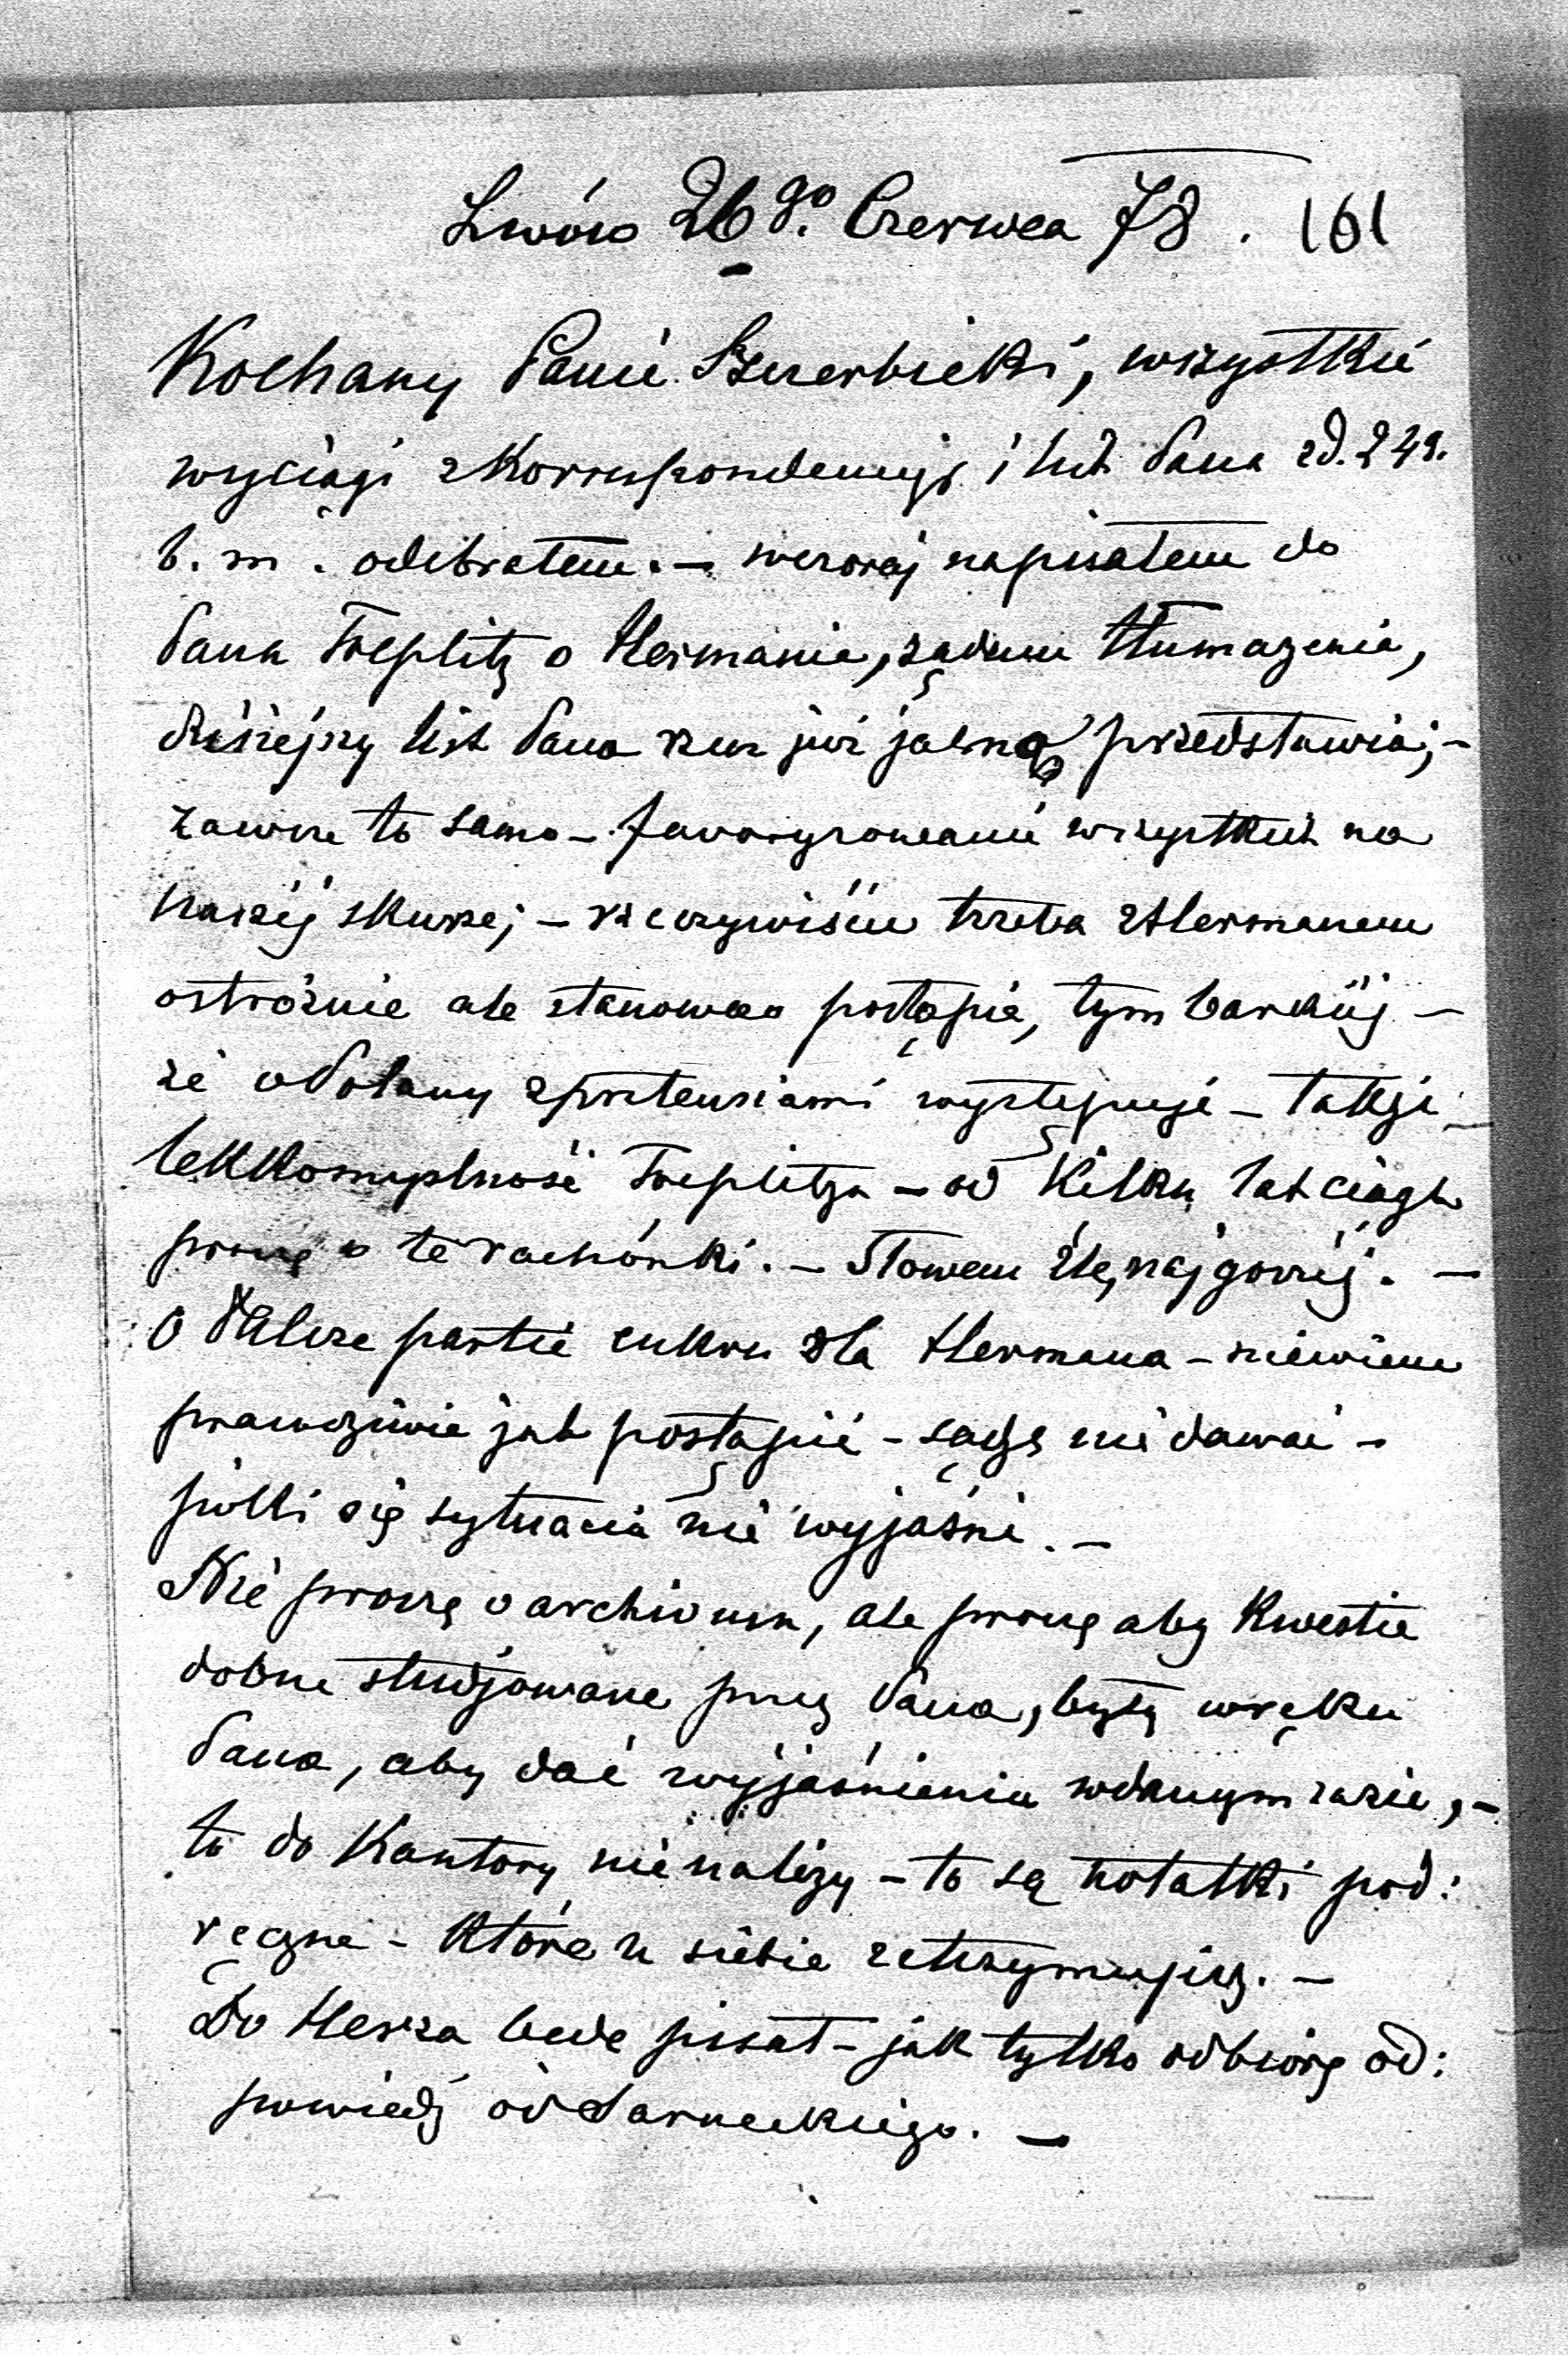 Lwów 26go. Czerwca 78. 161
Kochany Panie Szczerbicki, wszystkie
wyciągi z Korrespondencyj i list Pana zd. 24g.
b. m. odebrałem. — wczoraj napisałem do
Pana Toeplitz o Hermania, żądam tłumaczenia,
dzisiejszy list Pana rzecz już jaśno przedstawia; —
zawsze to samo — faworyzowanie wszystkich na
naszéj skurze; — rzeczywiście trzeba z Hermanem
ostróżnie ale stanowczo postąpić, tym bardziéj —
że o Polany z pretensiami występuje — takže
lekkomyslność Toeplitza — od kilku lat ciągle
proszę o te rachónki. — Słowem źle, najgorzéj. —
O dalsze partie cukru dla Hermana — niewiem
prawdziwie jak postąpić — sądzę nie dawać —
póki się sytuacia nie wyjaśni. —
Nie proszę o archivum, ale proszę aby kwestie
dobrze studjowane przez Pana, były w ręku
Pana, aby dać wyjaśnienia w danym razie, —
to do Kantory nie należy — to są notatki pod:
ręczne — które u siebie zatrzymujesz. —
Do Herza bede pisał — jak tylko odbiorę od:
powiedź od Sarneckiego. —